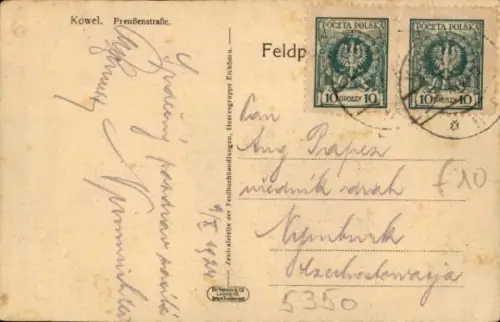 Kowel. Preußenstraße.
Feldp
POCZTA POLSKA
10 GROSZY 10
POCZTA POLSKA
10 GROSZY 10
Srdečný pozdrav
9/X 1924
Zentralstelle der Feldbuchhandlungen, Heeresgruppe Eichhorn.
Pan
Aug
úředník drah
Nymburk
Czechosłowacja
£10
5350